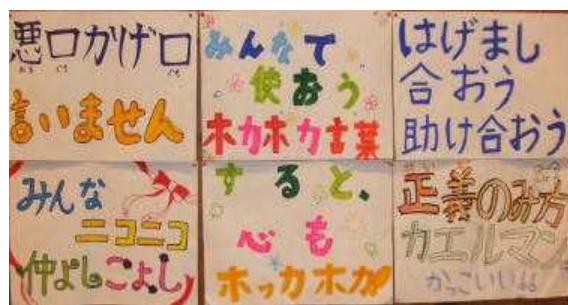 悪口かげ口
わる ぐち ぐち
言いません
みんなで
使おう
ホカホカ言葉
はげまし
合おう
助け合おう
みんな
ニコニコ
仲よしこよし
すると、
心も
ホッカホカ
正義のみ方
カエルマン
かっこいい